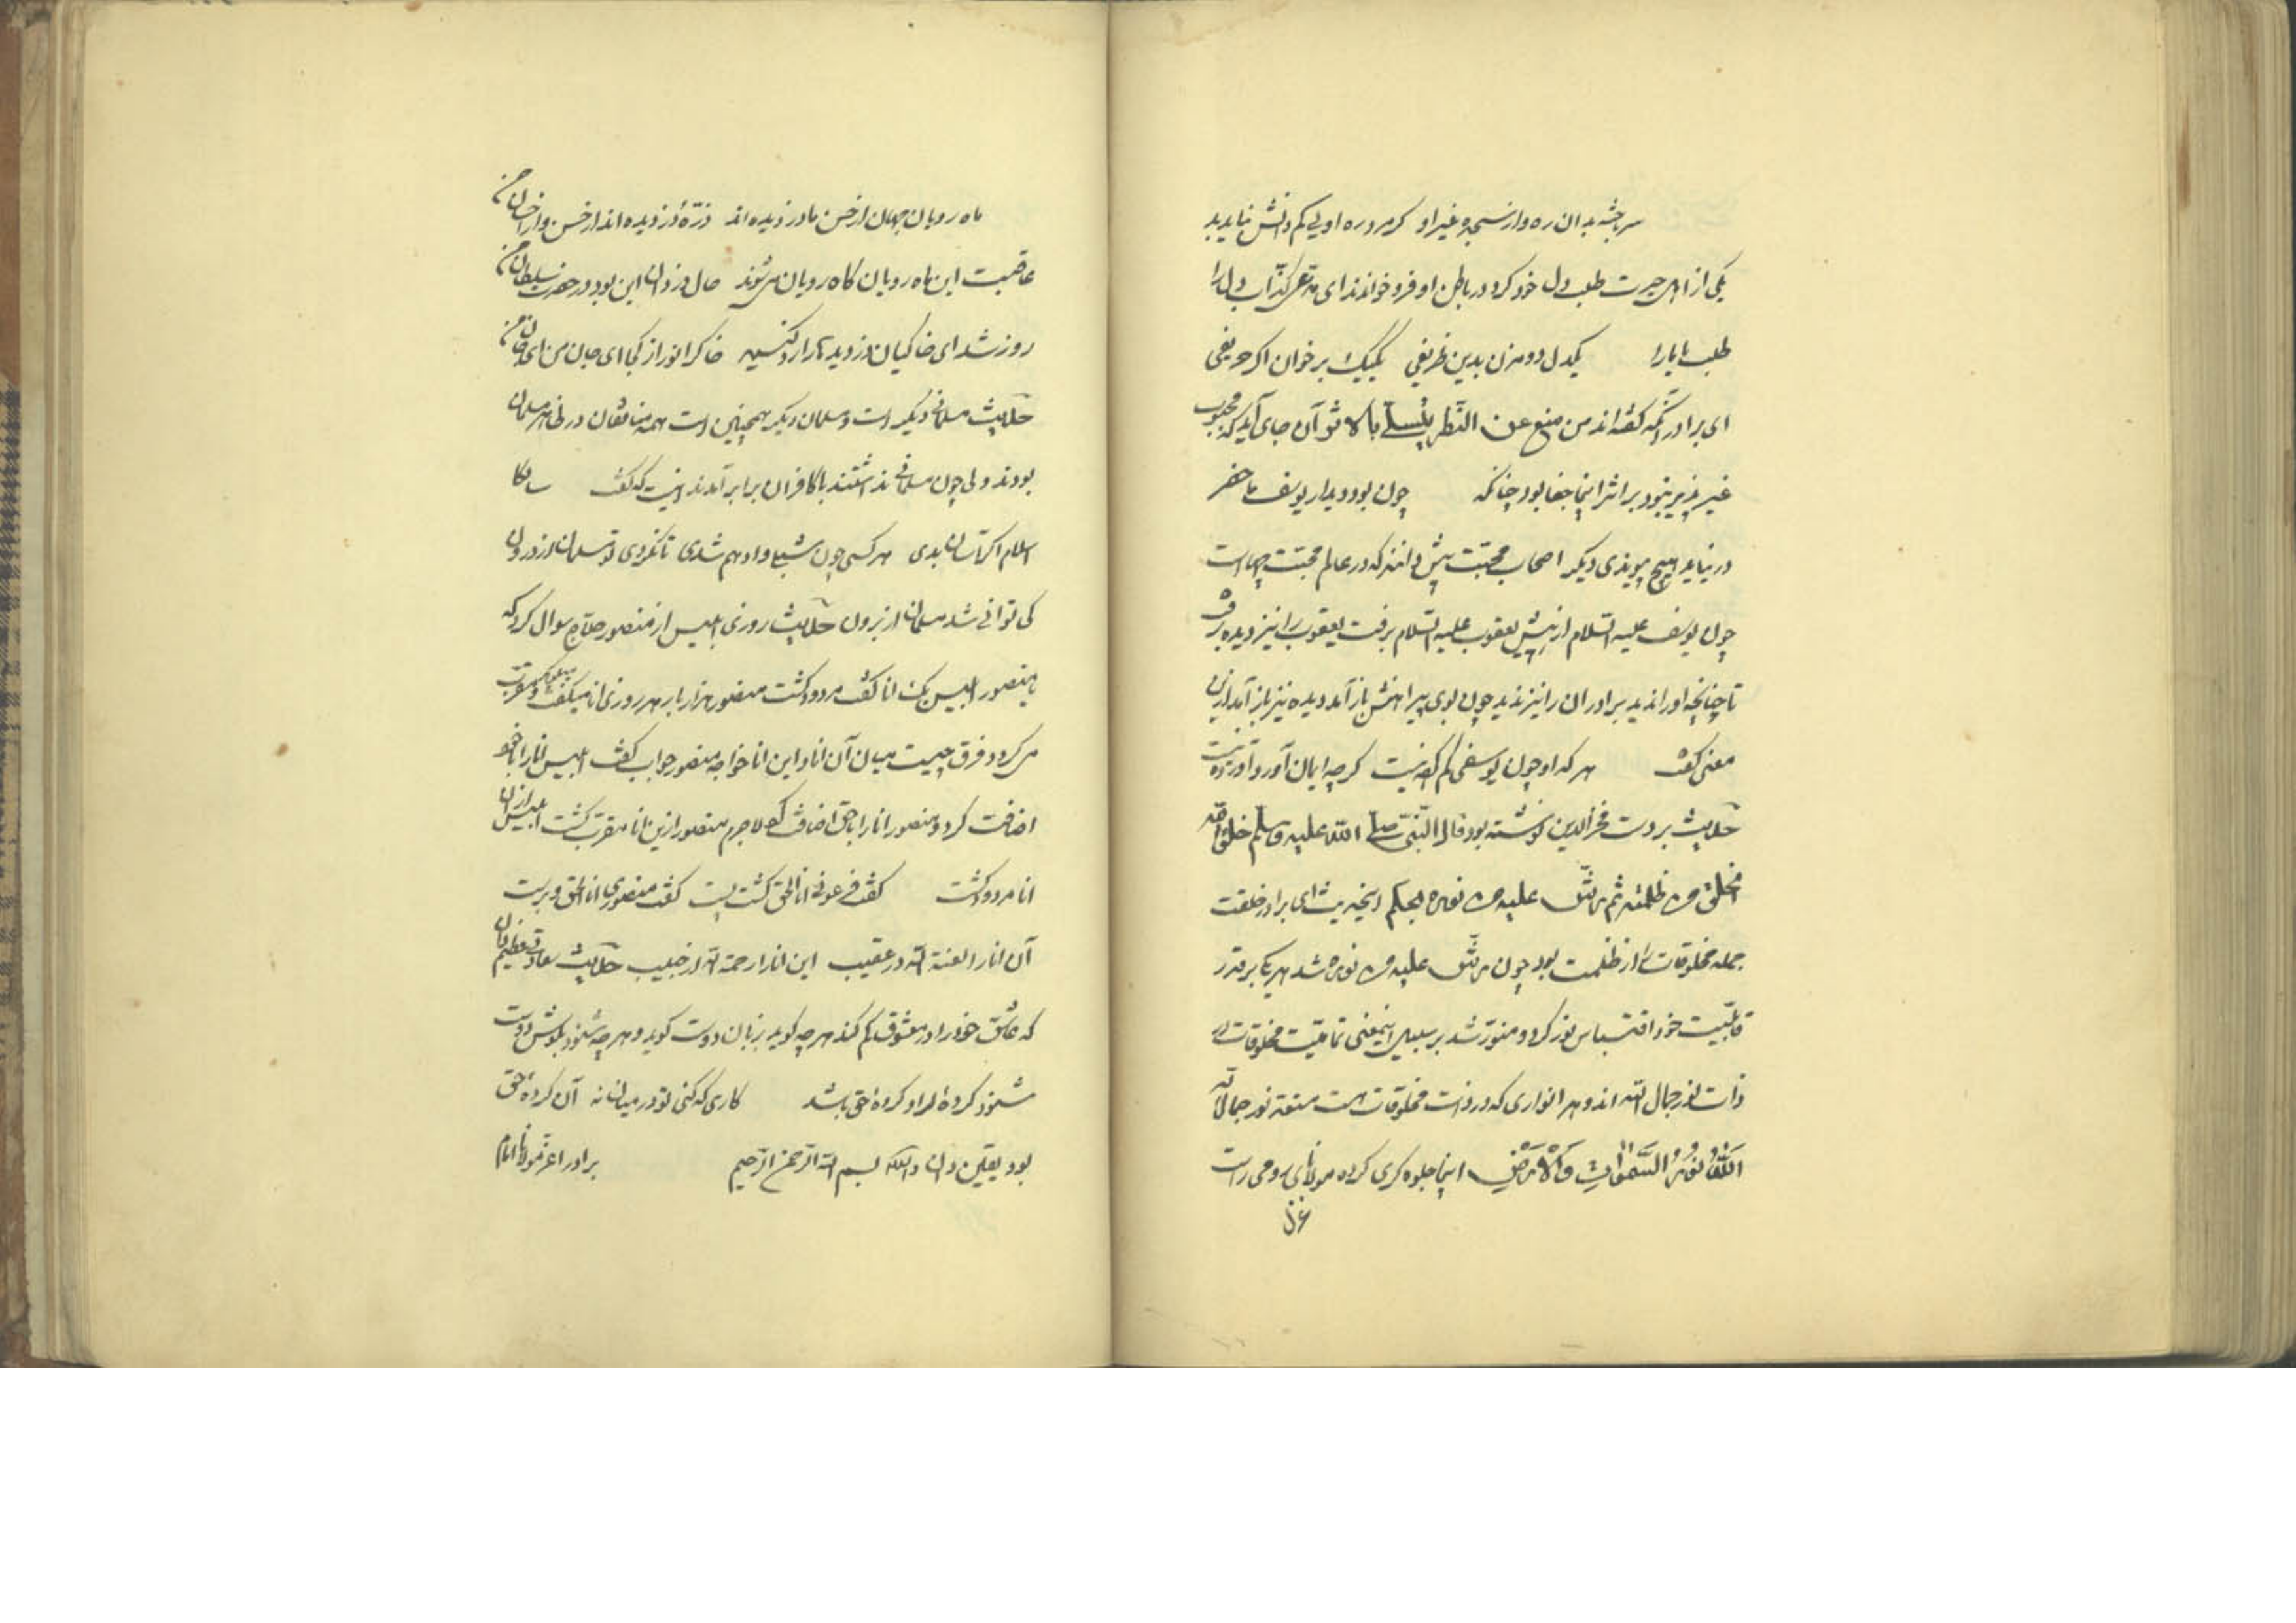 سر بخشد بدان ره وار نسجد غیر او کرم و ره اویی کم دانش نیاید بد
یکی از اهل حیرت طلب دل خود کرد در باطن او فرو خواندند ای مدعی کذاب دل را
طلب یا یار را یکدل دو مزن بدین ظریفی یک یک برخوان اگر حریفی
ای برادر آنکه گفته‌اند من منع عن النظر یتسلی بالاثر آن جای آید که محبوب
غیر بود بر اثر اینجا جفا بود چنانکه چون بود دیدار یوسف ما حضر
در نیابد هیچ پیوندی دیگر اصحاب محبت پیش دانند که در عالم محبت چهاست
چون یوسف علیه السلام از پیش یعقوب علیه السلام برفت یعقوب را نیز دیده برفت
تا چنانچه او را ندید برادران را نیز ندید چون بوی پیراهنش باز آمد دیده نیز باز آمد ازین
معنی گفت هر که او چون یوسفی گم کرده نیست گرچه ایمان آورد آورده نیست
حکایت بر دست فخر الدین نوشته بود قال النبی صلی الله علیه وسلم خلق الله
الخلق فی ظلمته ثم رش علیهم من نوره بحکم این حدیث ای برادر خلقت
جمله مخلوقات را از ظلمت بود چون رش علیهم من نوره شد هر یک بر قدر
قابلیت خود اقتباس نور کرد و منور شد بر سبیل اینمعنی تمامیت مخلوقات در
ذات نور جمال الله اند و هر انواری که در ذات مخلوقات هست نور جمال الله
اَللهُ نُورُ السَّمٰوَاتِ وَالْاَرْضِ اینجا جلوه کری کرده مولانای رومی راست
غزل
ماه رویان جهان از حسن ما دزدیده‌اند ذرّهٔ دزدیده‌اند از حسن و از احسان من
عاقبت این ماه رویان کاه رویان می‌شوند حال دزدان این بود در حضرت سلطان من
روز شد ای خاکیان دزدیدها را رد کنید خاک را نور از کجا ای جان من ای جان من
حکایت مسلمانی دیگر است و مسلمان دیگر همچنین است همه منافقان در ظاهر مسلمان
بودند ولی چون مسلمانی نداشتند با کافران برابر آمدند اینست که گفت
اسلام اگر آسان بدی هر کسی چون شبلی و ادهم شدی تا نگردی تو مسلمان از درون
کی توانی شد مسلمان از برون حکایت روزی ابلیس از منصور حلاج سوال کرد که
یا منصور ابلیس یک انا گفت مردود گشت منصور هزار بار هر روزی انا میگفت و مقرب
می کرد و فرق چیست میان آن انا و این انا خواجه منصور جواب گفت ابلیس انا را با خود
اضافت کرد و منصور انا را با حق اضافت کرد لاجرم منصور ازین انا مقرب گشت ابلیس از ان
انا مردود گشت گفت فرعونی انا الحق گشت پست گفت منصوری انا الحق و برست
آن انا را لعنة الله در عقیب این انا را رحمة الله از حبیب حکایت سعادت عظیم دان
که عاشق خود را در معشوق گم کند هر چه گوید بزبان دوست گوید و هر چه شنود بگوش دوست
شنود کردهٔ مراد کردهٔ حق باشد کاری که کنی تو در میان نه آن کردهٔ حق
بود یقین دان والله بسم الله الرحمن الرحیم برادر اعز مولانا امام